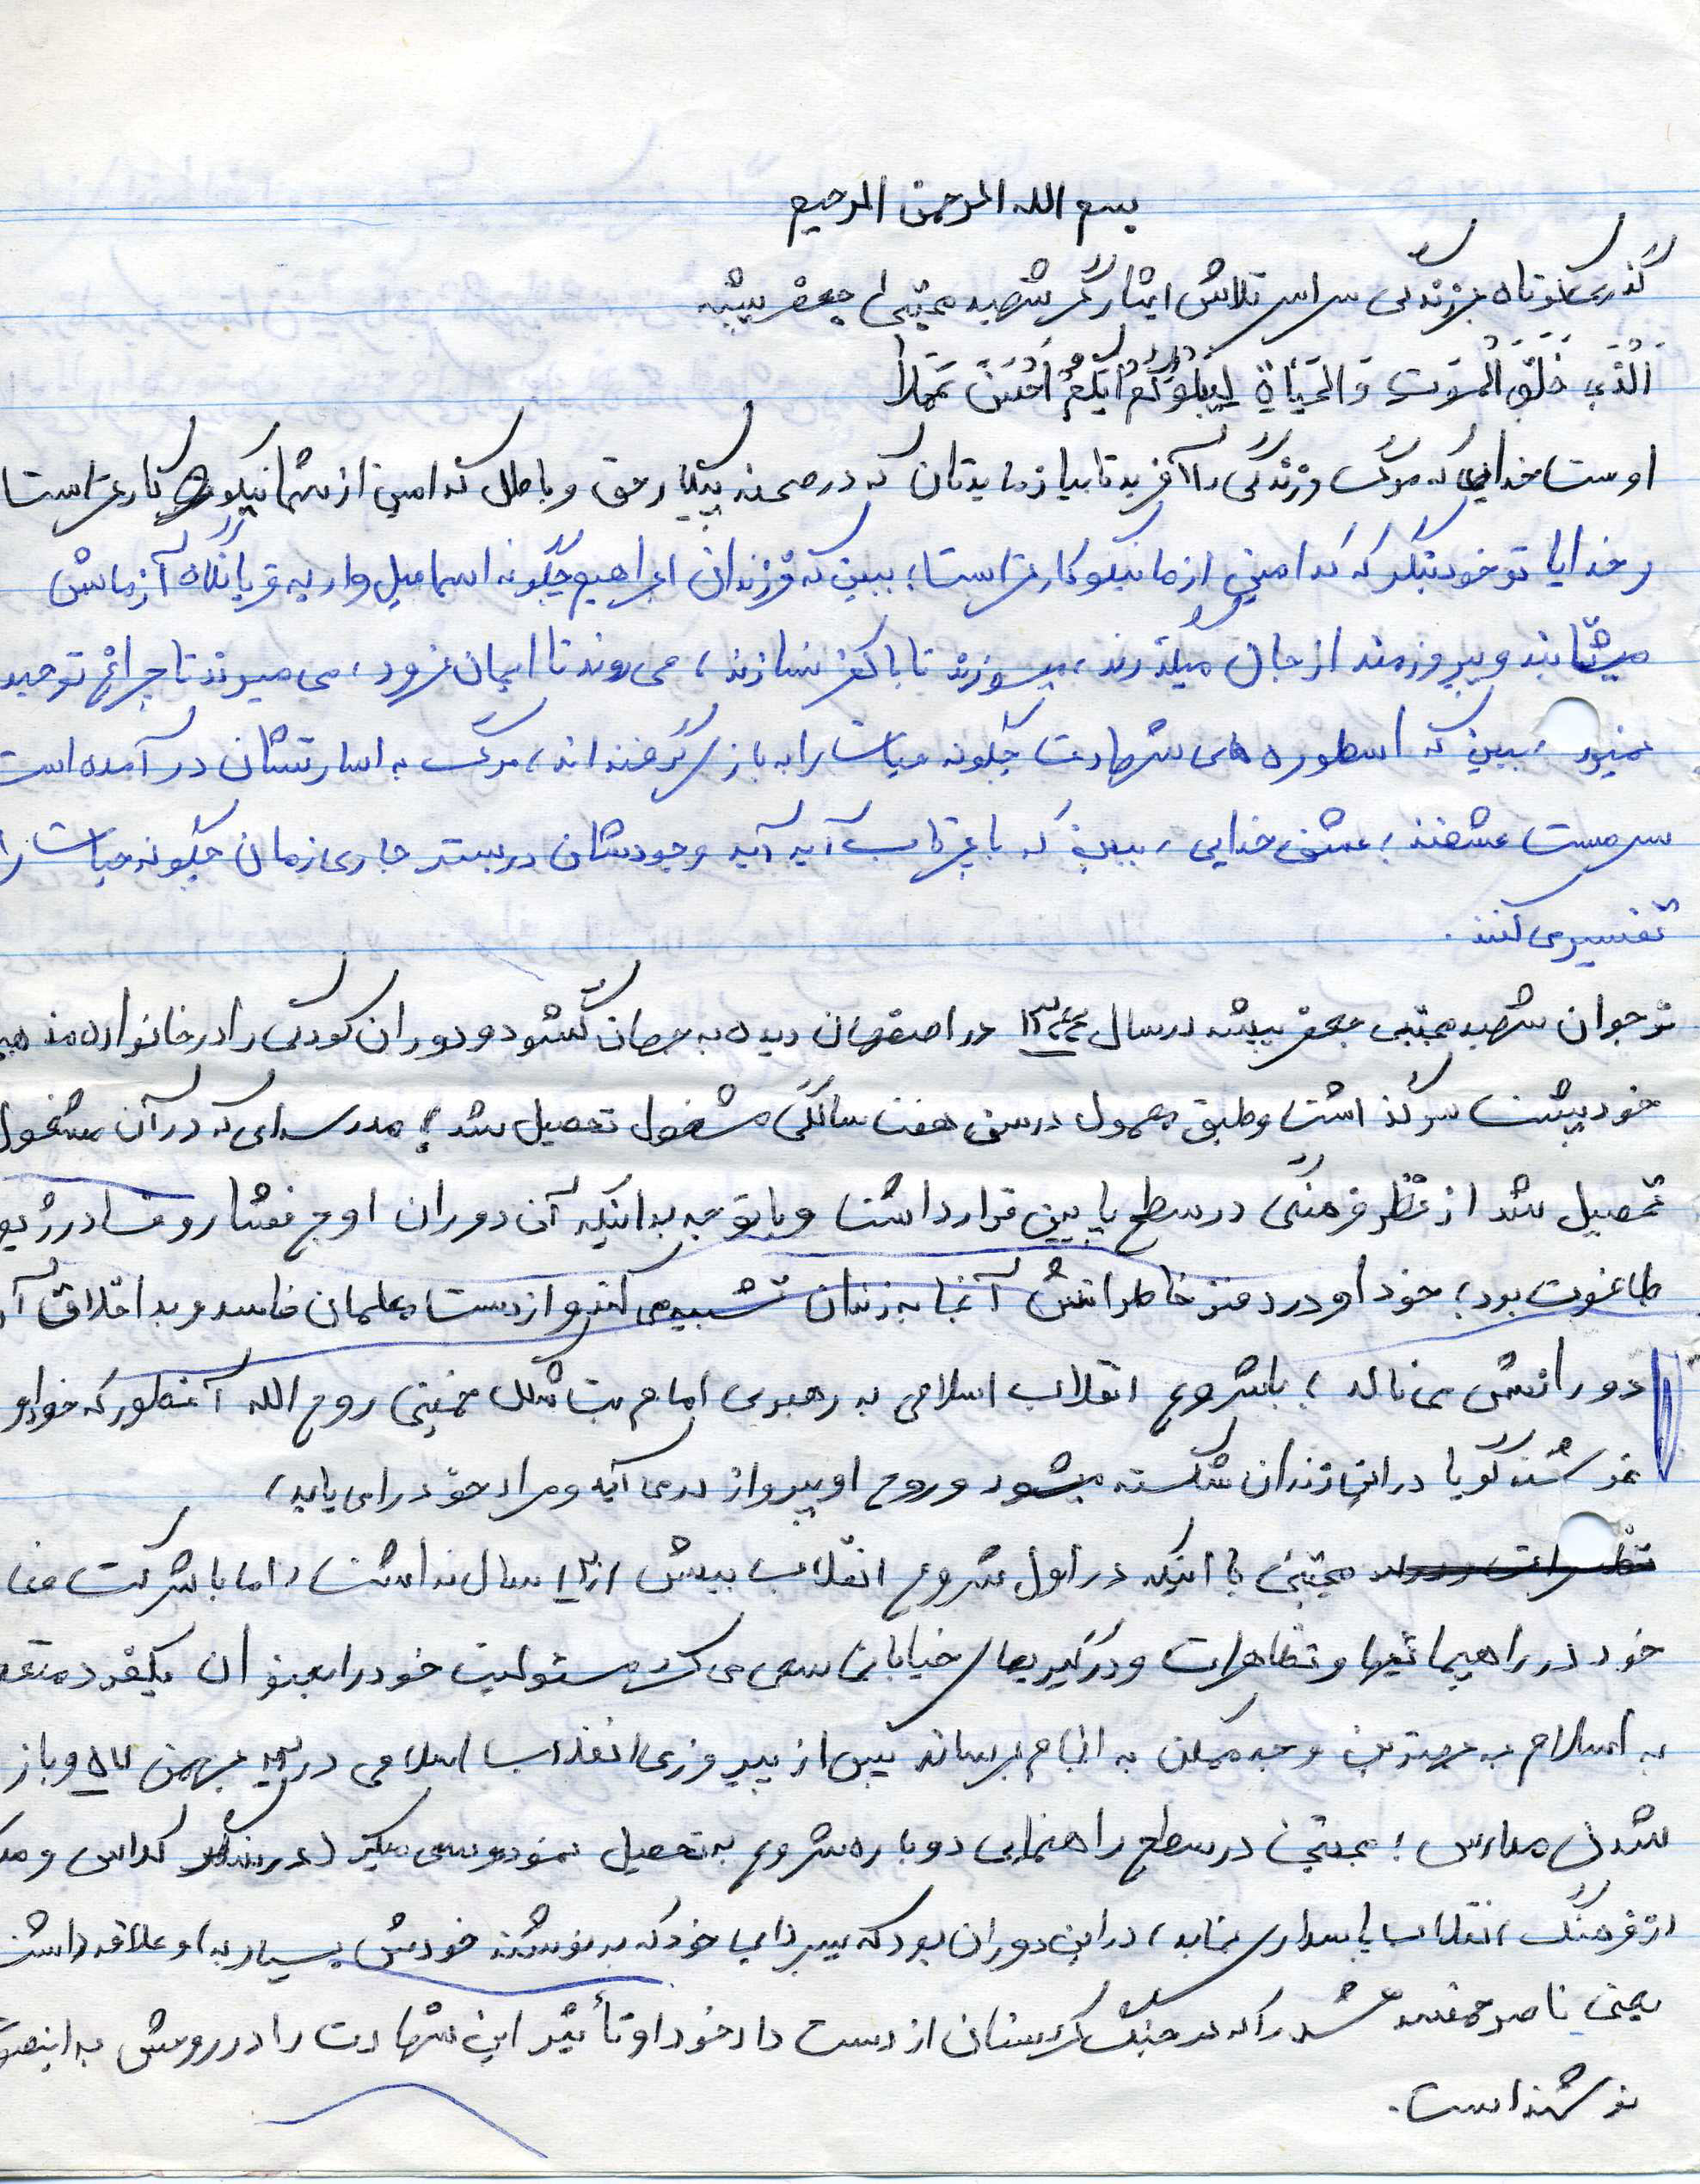 بسم الله الرحمن الرحیم
گذری کوتاه بزندگی سراسر تلاش ایثارگر شهید مجتبی جعفر پیشه
اَلَّذی خَلَقَ الْمَوْتَ وَالْحَیاةِ لِیَبْلُوَکُمْ اَیُّکُمْ اَحْسَنَ عَمَلاً
اوست خدایی که مرگ و زندگی را آفرید تا بیازمایدتان که در صحنه پیکار حق و باطل کدامین از شما نیکو کارتر است
و خدایا تو خود بنگر که کدامین از ما نیکو کارتر است؛ ببین که فرزندان ابراهیم چگونه اسماعیل وار به قربانگاه آزمایش
میشتابند و پیروزمند از جان میگذرند، میسوزند تا با کفر نسازند، می روند تا ایمان نرود، می میرند تا چراغ توحید
نمیرد، ببین که اسطوره های شهادت چگونه حیات را به بازی گرفته اند، مرگ به اسارتشان در آمده است
سرمست عشقند؛ عشق خدایی، ببین که با قرائت آیه آیه وجودشان در بستر جاری زمان چگونه حیات را
تفسیر می کنند.
نوجوان شهید مجتبی جعفر پیشه در سال ۱۳۴۴ در اصفهان دیده به جهان گشود و دوران کودکی را در خانواده مذهبی
خود پشت سر گذاشت و طبق معمول در سن هفت سالگی مشغول تحصیل شد؛ مدرسه ای که در آن مشغول
تحصیل شد از نظر فرهنگی در سطح پایین قرار داشت و با توجه به اینکه آن دوران اوج فشار و فساد رژیم
طاغوت بود؛ خود او در دفتر خاطراتش آنجا به زندان تشبیه می کند و از دست معلمان فاسد و بد اخلاق آن
دورانش می نالد؛ با شروع انقلاب اسلامی به رهبری امام بت شکن خمینی روح الله آنطور که خود او
نوشته گویا در این زندان شکسته میشود و روح او به پرواز در می آید و مراد خود را می یابد،
مجتبی با اینکه در اول شروع انقلاب بیش از ۱۳ سال نداشت، اما با شرکت
خود در راهپیمائیها و تظاهرات و درگیریهای خیابانی سعی می کرد مسئولیت خود را بعنوان یکفرد متعهد
به اسلام به بهترین وجه ممکن به انجام برساند پس از پیروزی انقلاب اسلامی در ۲۲ بهمن ۵۷ و باز
شدن مدارس؛ مجتبی در سطح راهنمایی دوباره شروع به تحصیل نمود و سعی میکند کلاس و
از فرهنگ انقلاب پاسداری نماید، در این دوران بود که پسر دایی خود که به نوشته خودش بسیار به او علاقه داشت
یعنی ناصر را که در جنگ کردستان از دست داد خود او تأثیر این شهادت را در روحش
نوشته است.